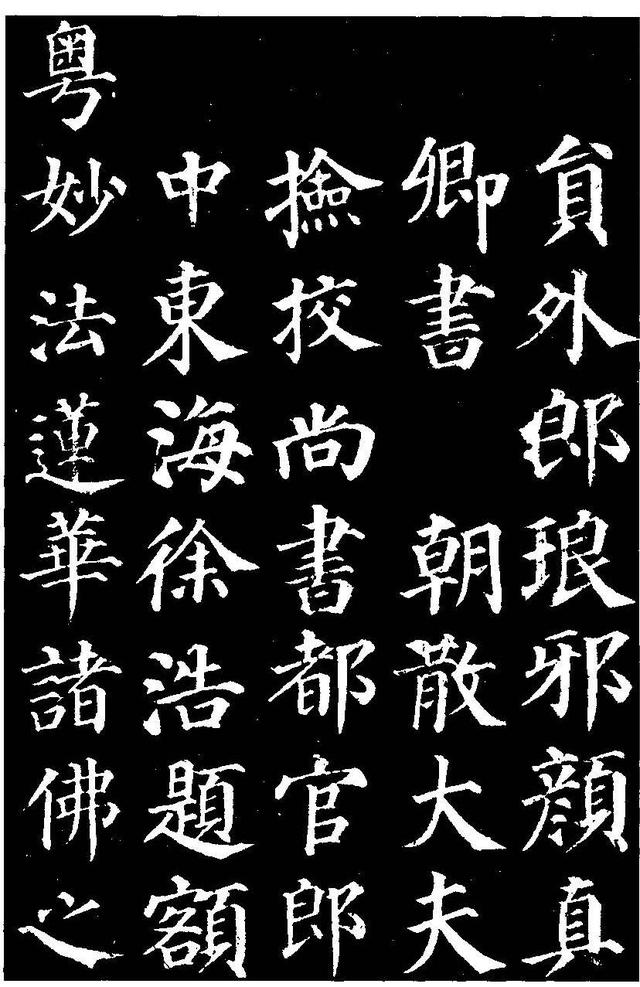 貟外郎琅邪顔真
卿書 朝散大夫
撿挍尚書都官郎
中東海徐浩題額
粵妙法蓮華諸佛之